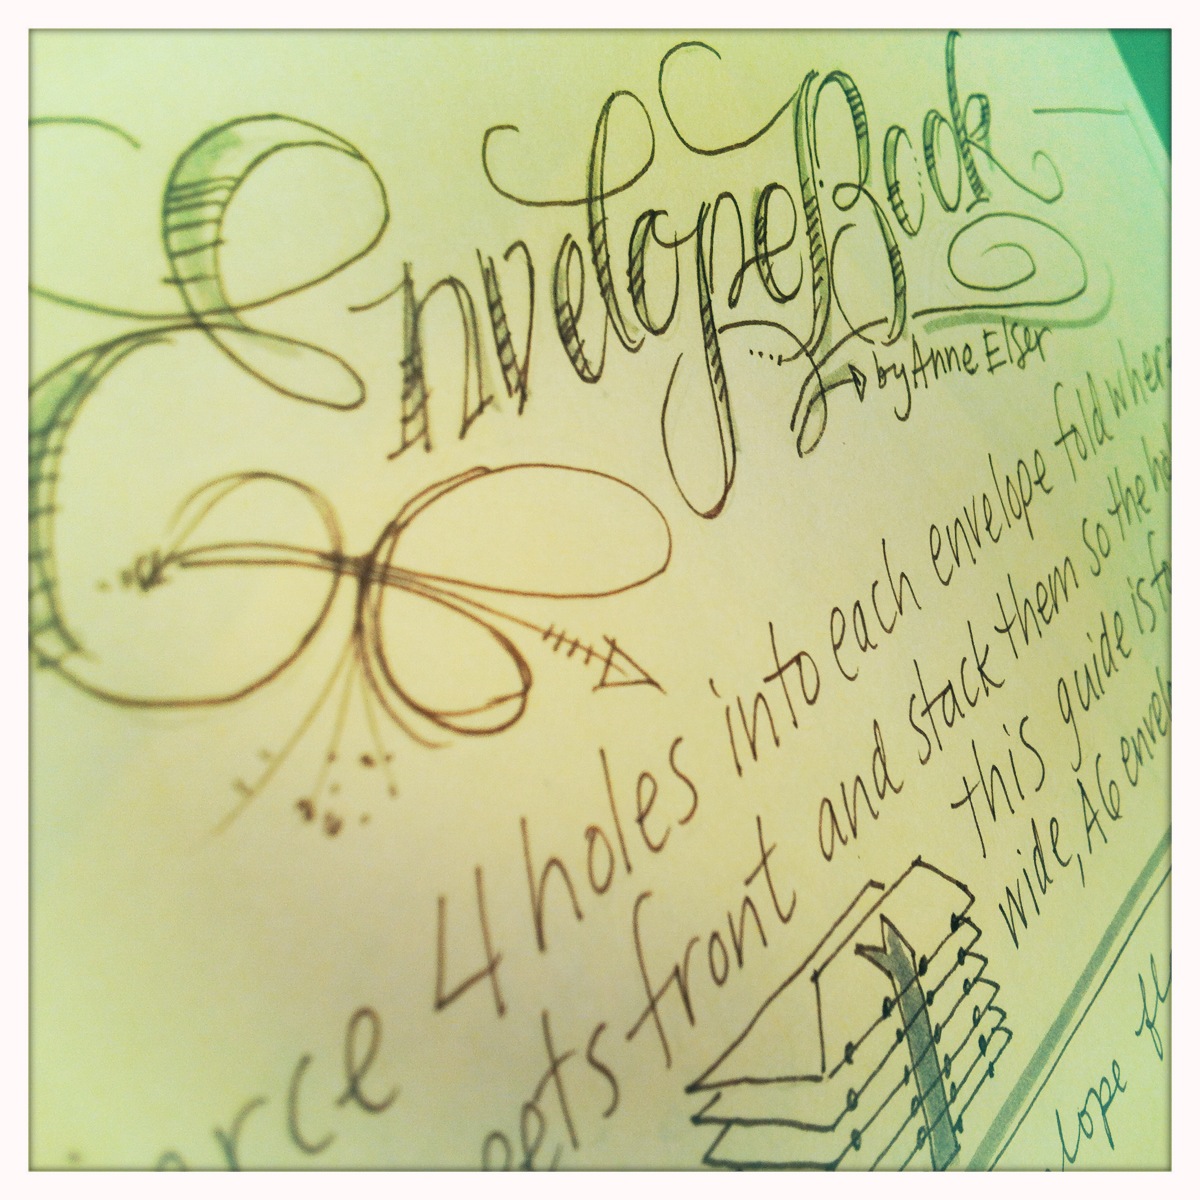 Envelope Book
by Anne Elser
4 holes into each envelope fold where
front and stack them so the
this guide is
wide, A6